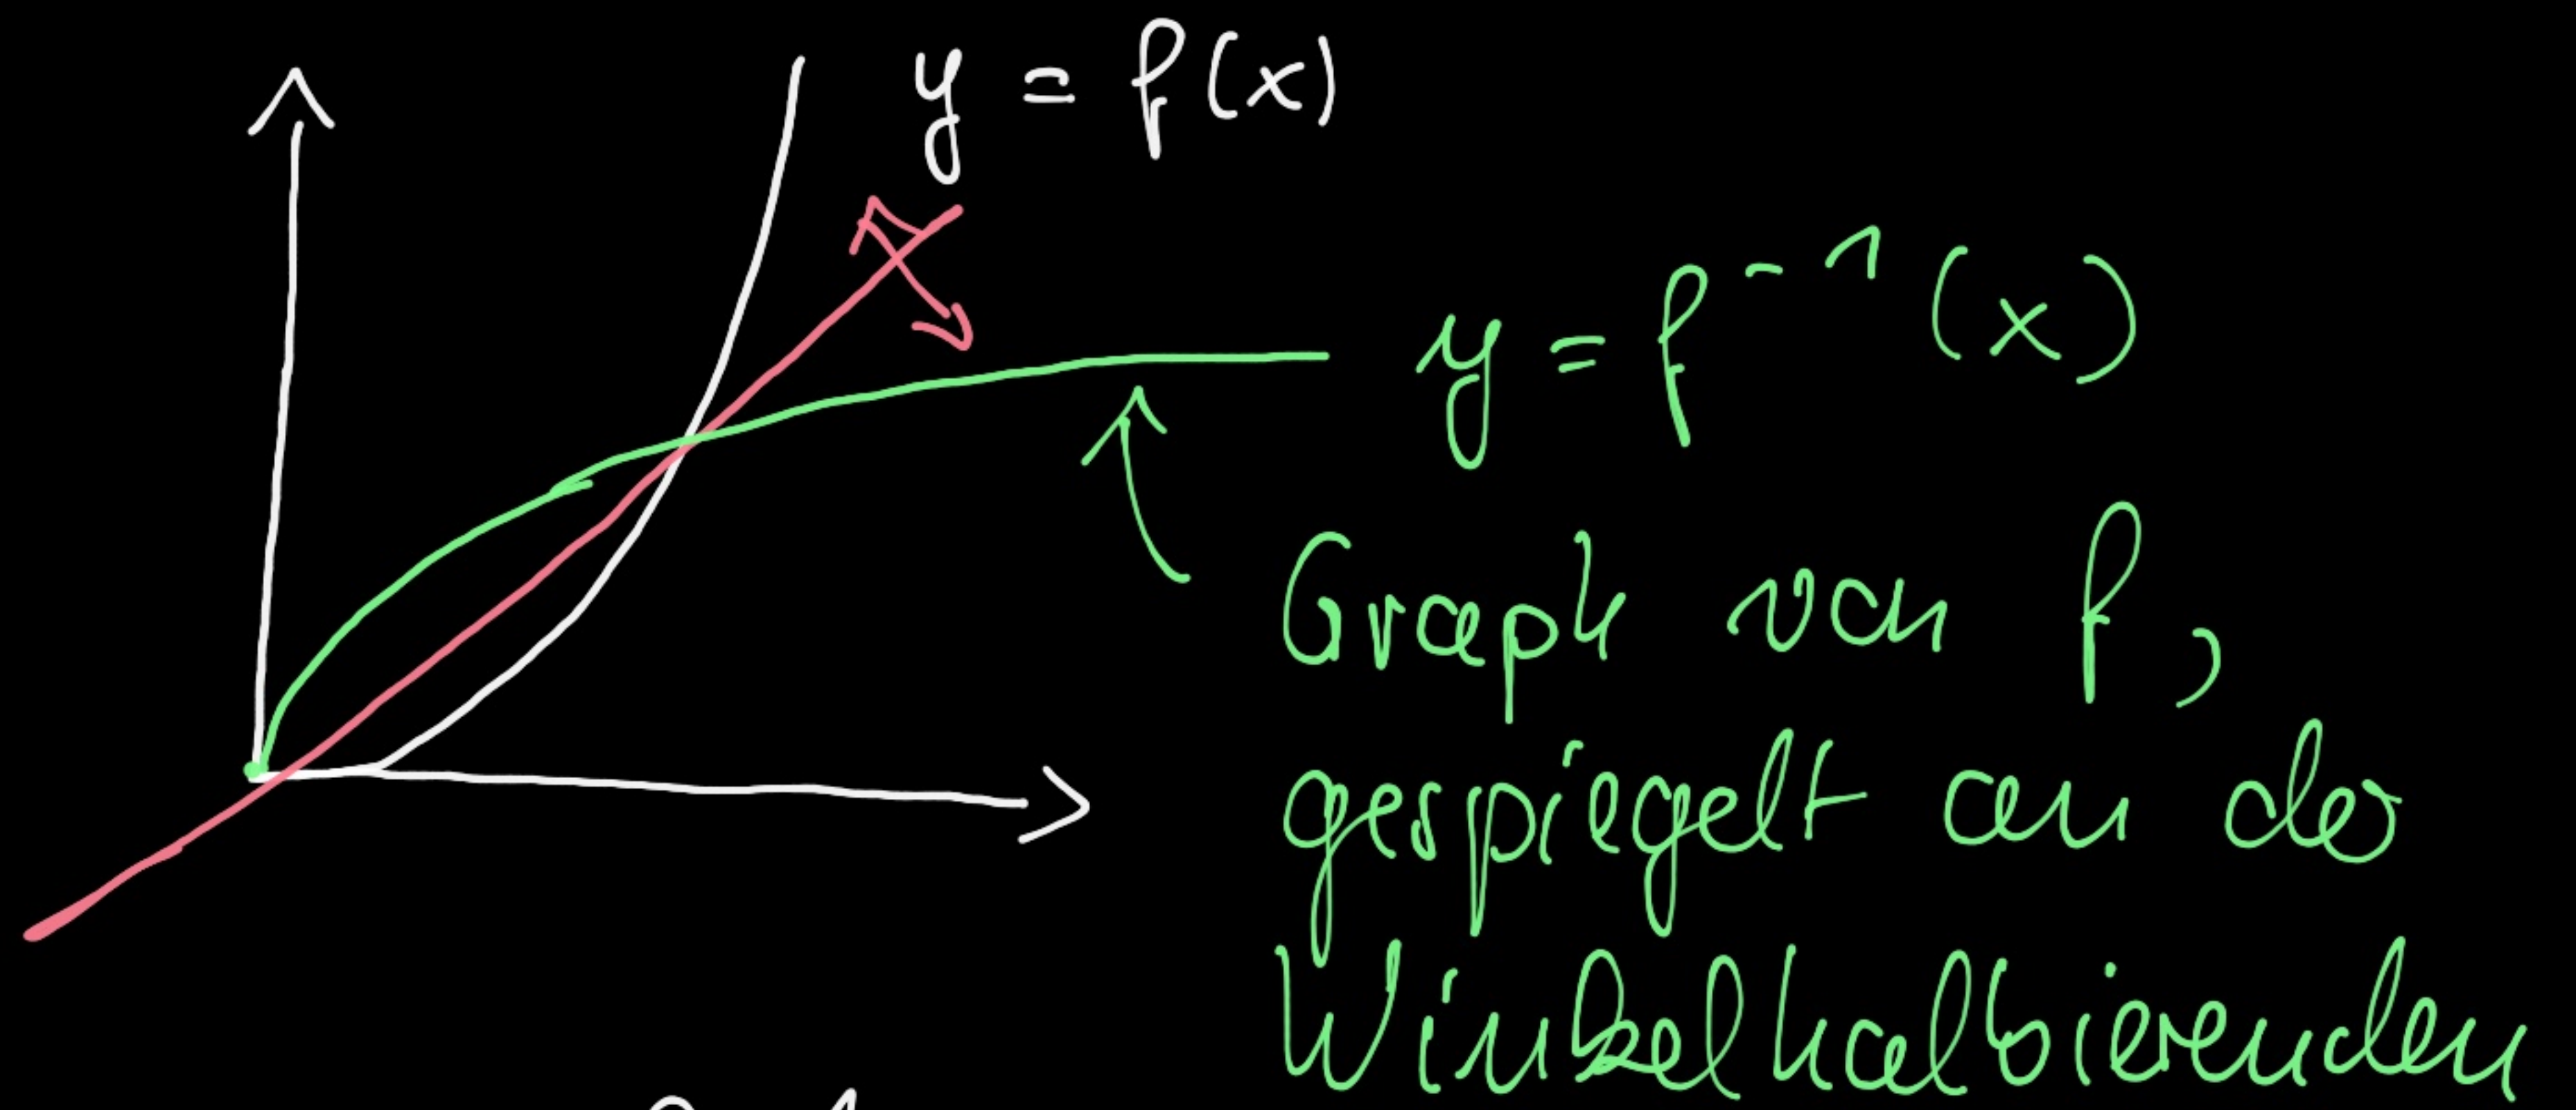 y = f(x)
y = f⁻¹(x)
Graph von f,
gespiegelt an der
Winkelhalbierenden